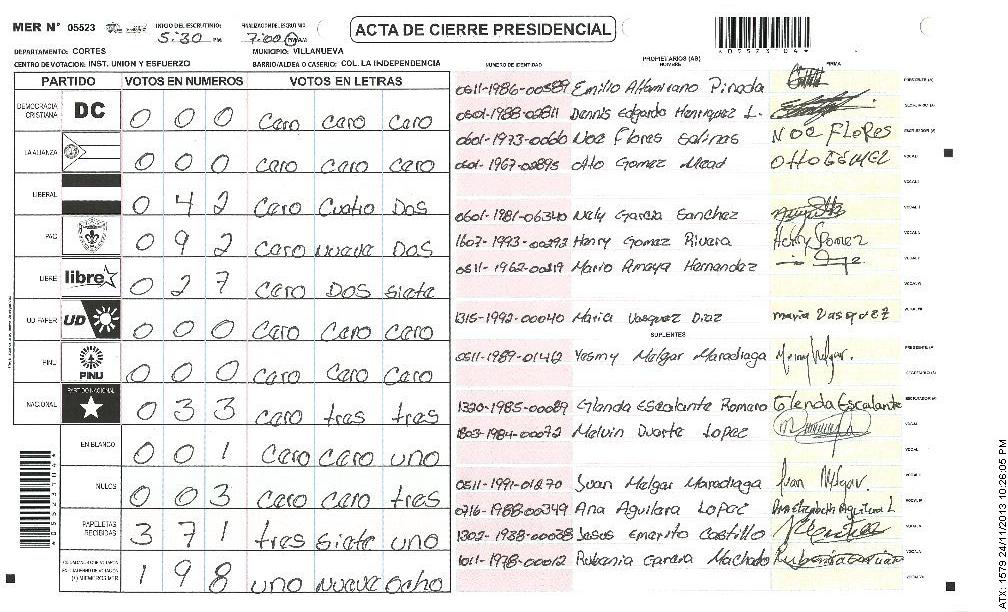 MER N° 05523
INICIO DEL ESCRUTINIO:
5:30 PM
FINALIZACION DEL ESCRUTINIO
7:00
ACTA DE CIERRE PRESIDENCIAL
DEPARTAMENTO: CORTES
MUNICIPIO: VILLANUEVA
CENTRO DE VOTACION: INST. UNION Y ESFUERZO
BARRIO/ALDEA O CASERIO: COL. LA INDEPENDENCIA
PARTIDO VOTOS EN NUMEROS VOTOS EN LETRAS
DEMOCRACIA CRISTIANA DC 0 0 0 caro caro caro
LA ALIANZA 0 0 0 caro caro caro
LIBERAL 0 4 2 caro cuatro Dos
PAC 0 9 2 caro nueve Dos
LIBRE libre 0 2 7 caro Dos siete
UD FAPER UD 0 0 0 caro caro caro
PINU PINU 0 0 0 caro caro caro
NACIONAL PARTIDO NACIONAL 0 3 3 caro tres tres
EN BLANCO 0 0 1 caro caro uno
NULOS 0 0 3 caro caro tres
PAPELETAS RECIBIDAS 3 7 1 tres siete uno
1 9 8 uno nueve ocho
NUMERO DE IDENTIDAD
PROPIETARIOS (AS)
NOMBRE
FIRMA
0511-1986-00589 Emilio Altamirano Pineda
0501-1988-02811 Dennis Edgardo Henriquez L.
0601-1973-0060 Noe Flores Salinas NOE FLORES
0601-1967-02895 Oto Gomez Mead OTTO GOMEZ
0601-1981-06340 Nely Garcia Sanchez
1607-1993-00292 Henry Gomez Rivera Henry Gomez
0511-1962-00319 Mario Amaya Hernandez
1315-1992-00040 Maria Vasquez Diaz maria vasquez
SUPLENTES
0511-1989-01462 Yesmy Melgar Maradiaga
1320-1985-00089 Glenda Escalante Romero Glenda Escalante
1803-1984-00072 Melvin Duarte Lopez
0511-1991-01870 Juan Melgar Maradiaga Juan Melgar
0716-1988-00349 Ana Aguilara Lopez
1302-1938-00038 Jesus Emerito Castillo
1011-1978-00012 Rubenia Garcia Machado
ATX: 1579 24/11/2013 10:26:05 PM